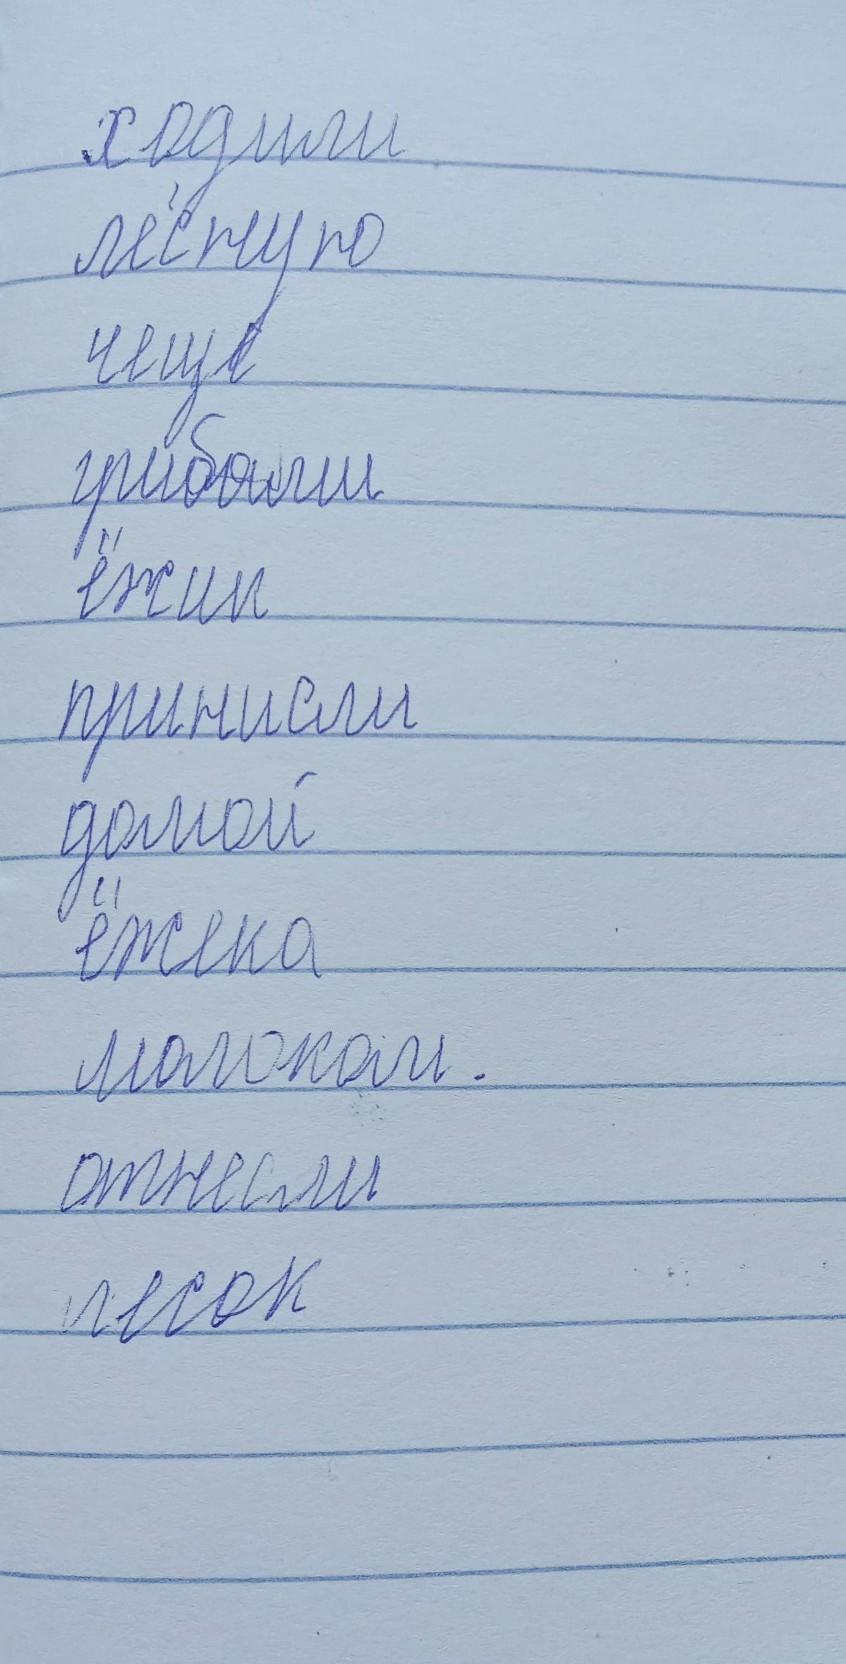 ходили
лесную
чеще
грибами
ёжик
принисли
домой
ёжека
малокам.
отнесли
лесок